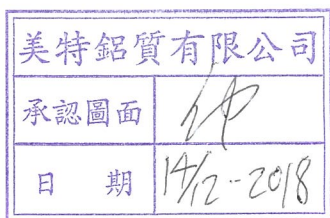 美特鋁質有限公司
承認圖面
日 期 14/12-2018